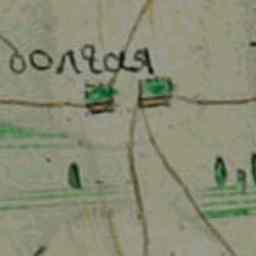 долгая